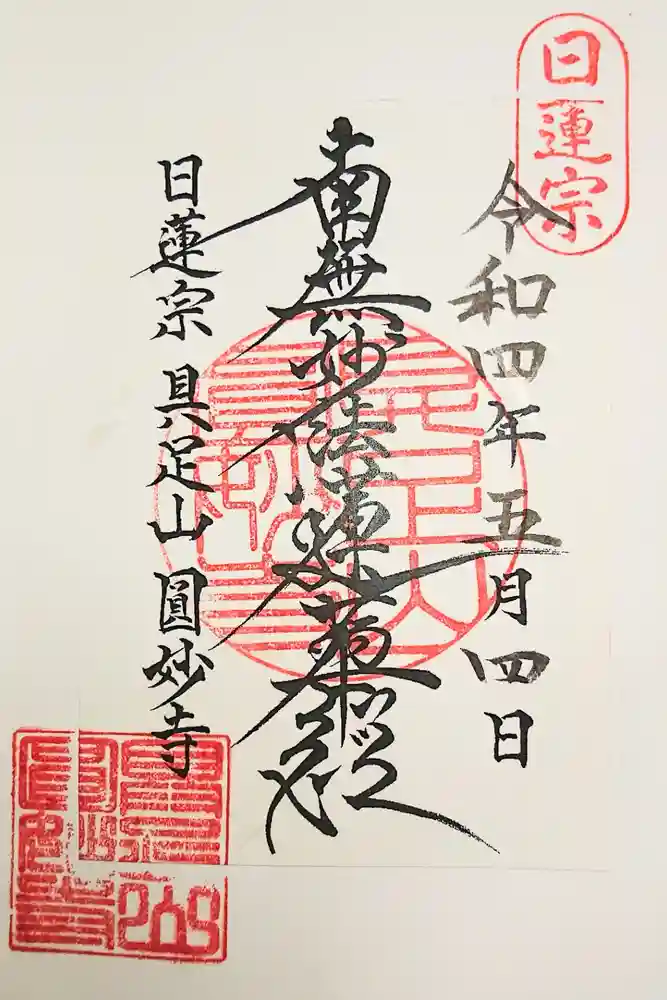 日蓮宗
令和四年五月四日
南無妙法蓮華経
日蓮宗 具足山 圓妙寺